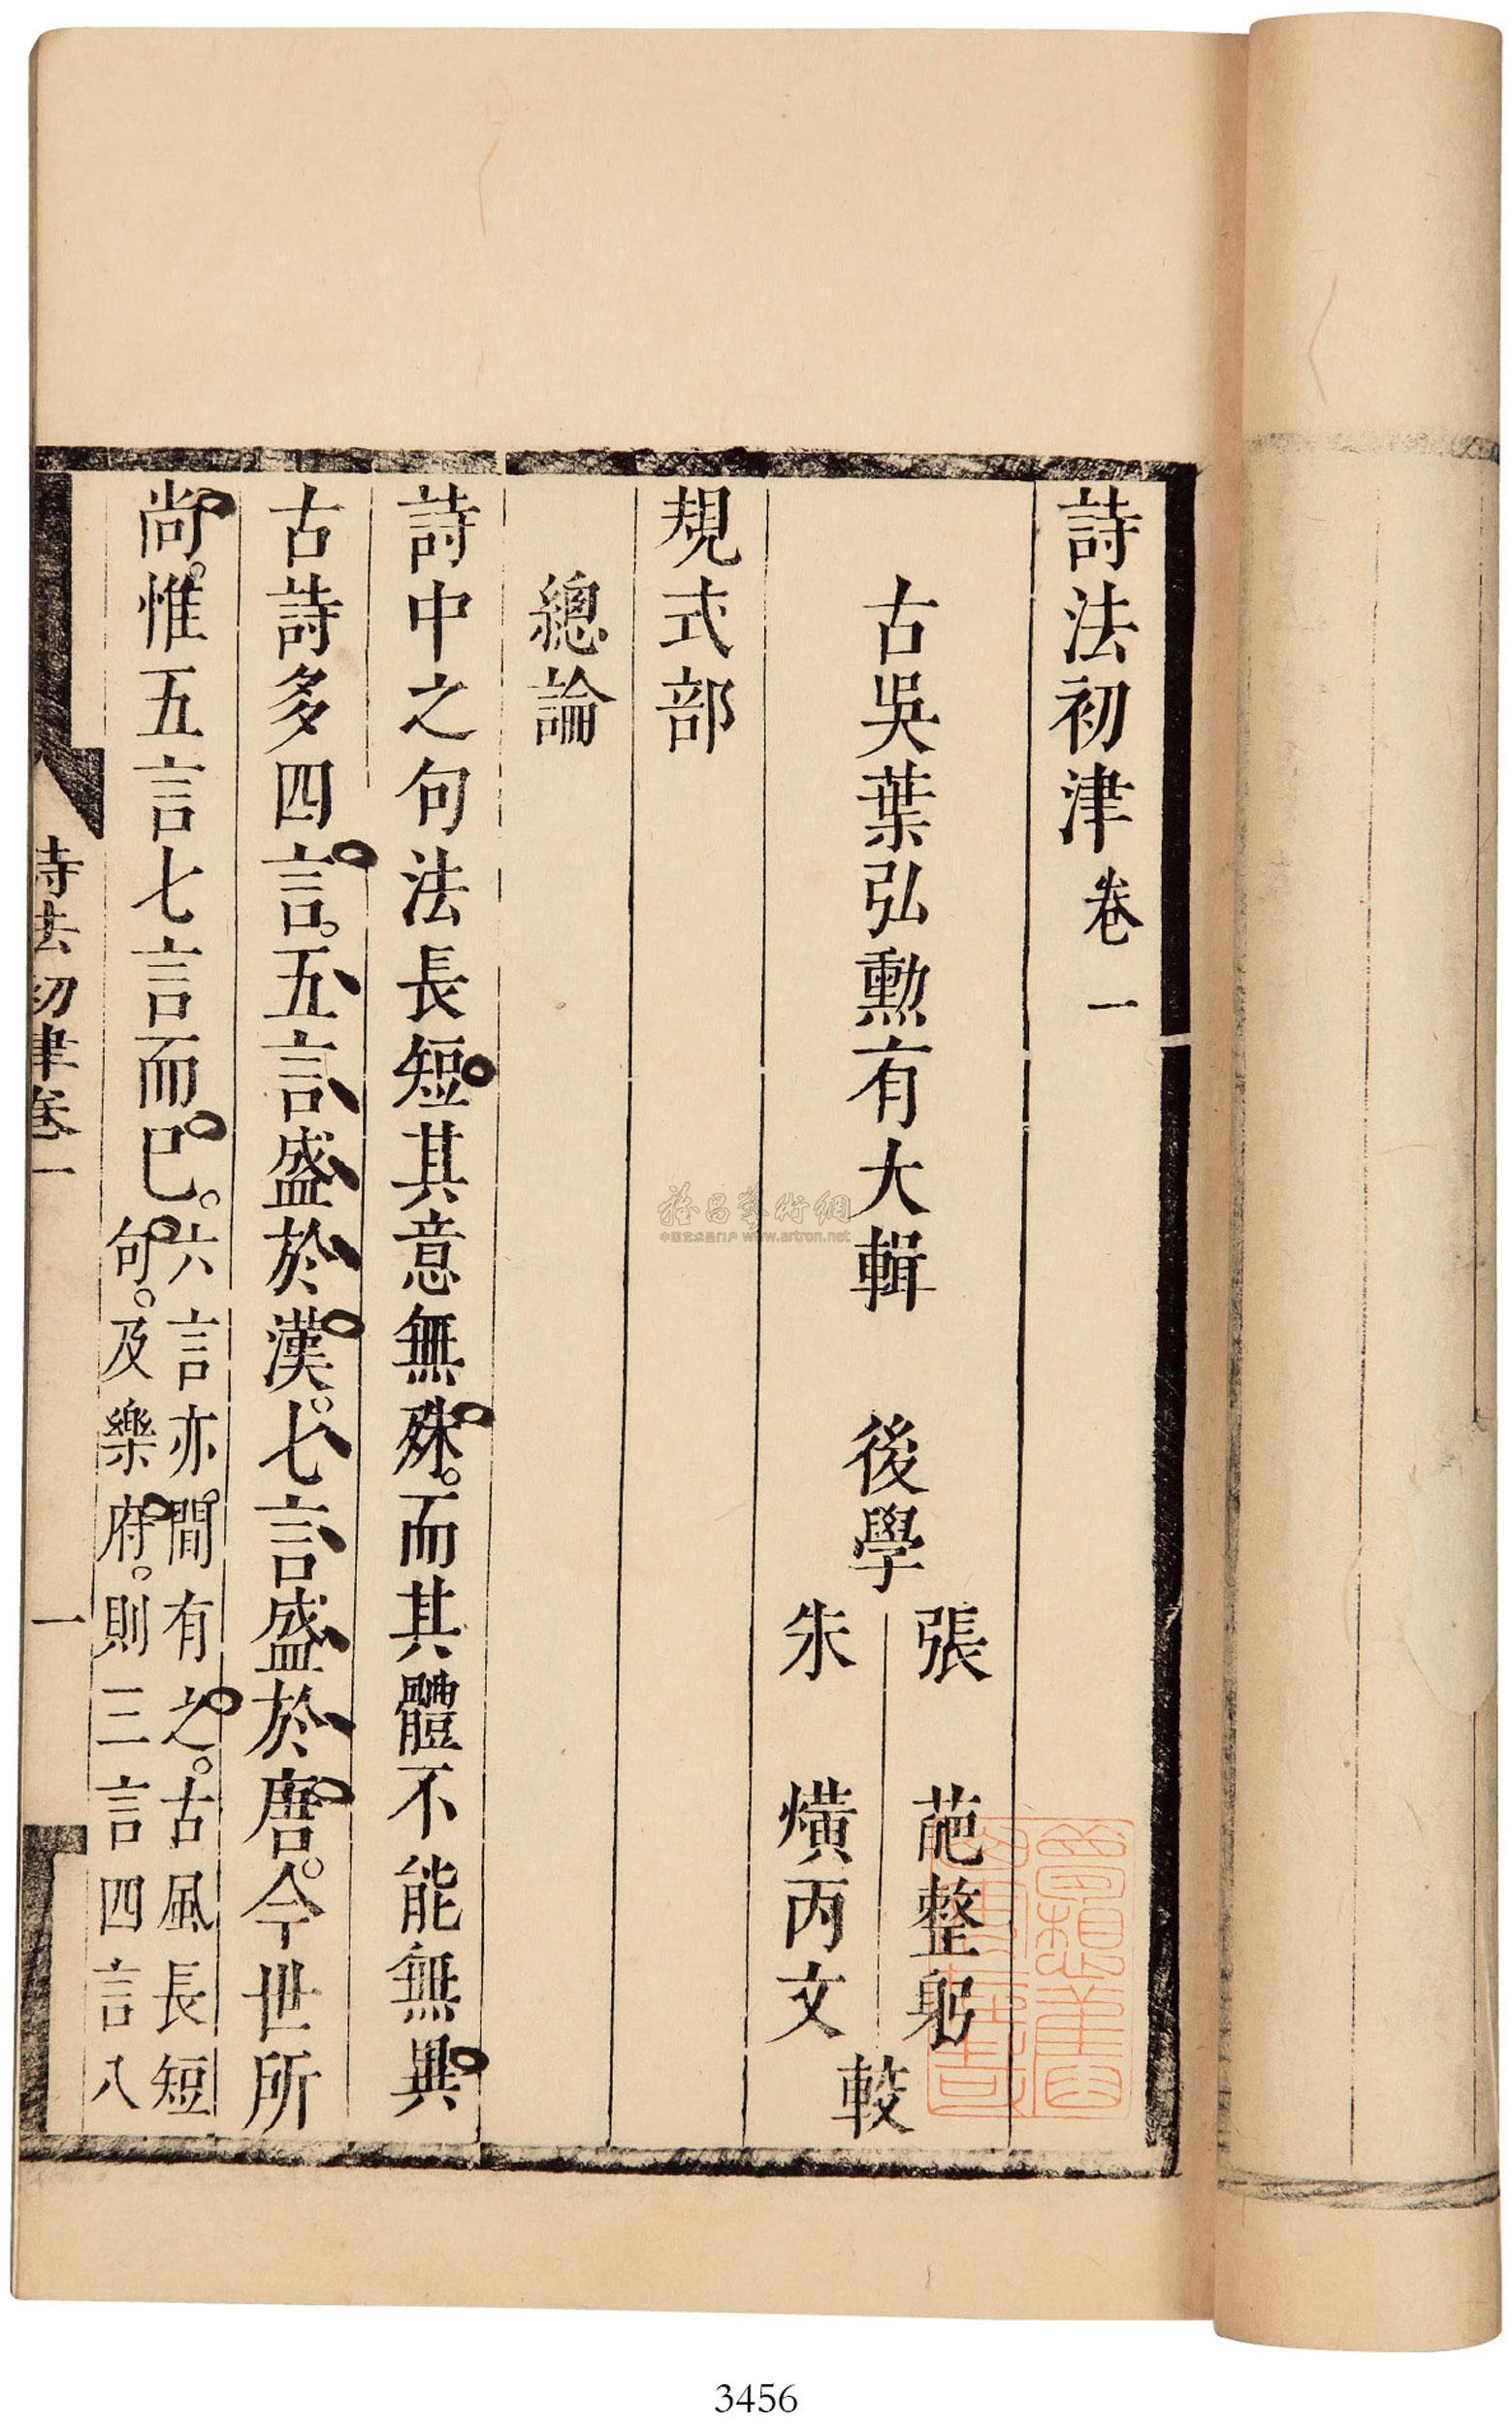 詩法初津卷一
古吳葉弘勲有大輯 後學
張 葩整躬
朱 熿丙文
較
規式部
總論
詩中之句法長短其意無殊。而其體不能無異
古詩多四言。五言盛於漢。七言盛於唐。今世所
尚。惟五言七言而已。
六言亦間有之。古風長短
句。及樂府。則三言四言八
詩法初津卷一
一
雅昌藝術網
中国艺术品门户 www.artron.net
3456